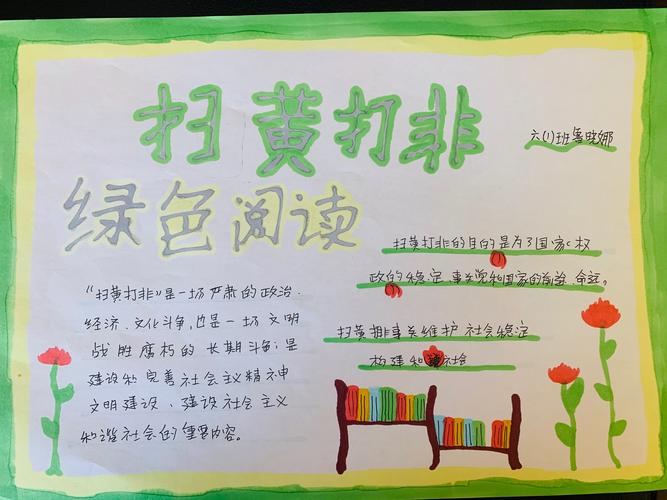 扫黄打非
六(1)班鲁晓娜
绿色阅读
"扫黄打非"是一场严肃的政治、
经济、文化斗争,也是一场文明
战胜腐朽的长期斗争;是
建设和完善社会主义精神
文明建设、建设社会主义
和谐社会的重要内容。
扫黄打非的目的是为了国家政权
政的稳定,事关党和国家的前途、命运。
扫黄排事关维护社会稳定
构建和谐社会